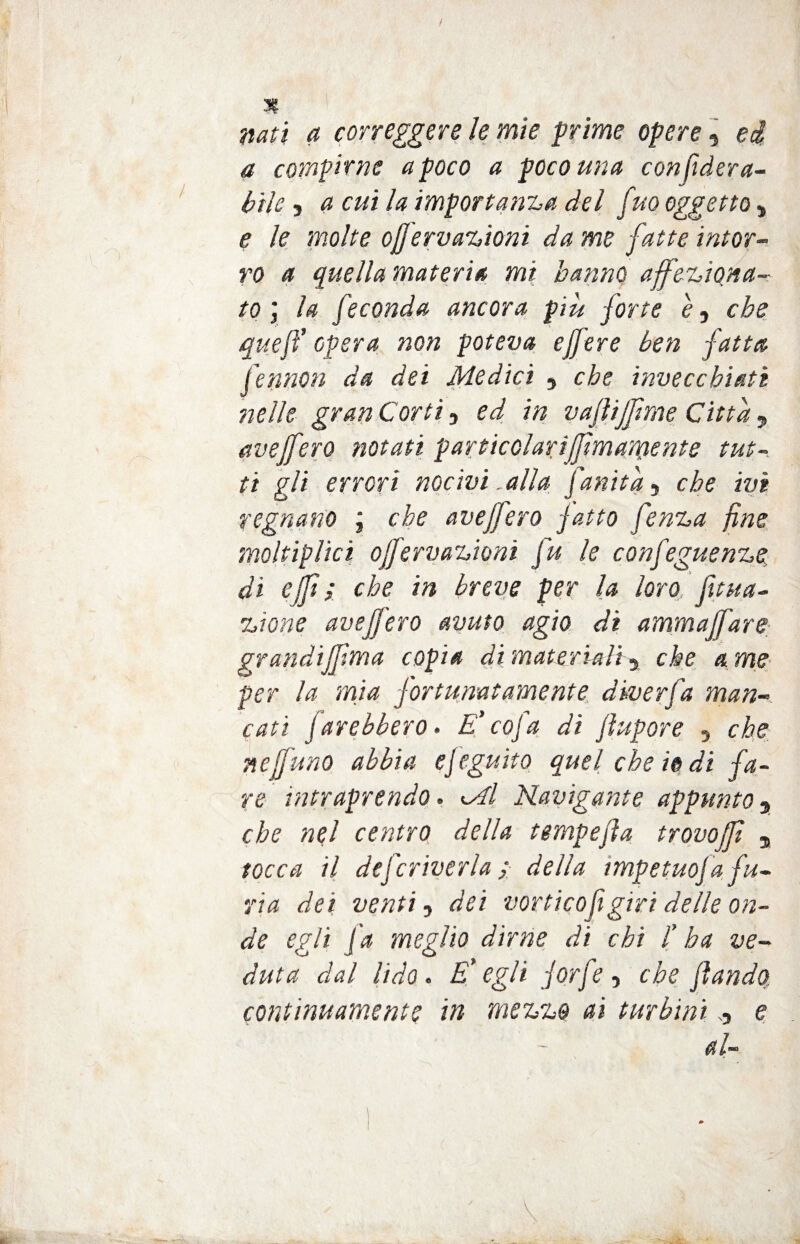 x
nati a correggere le mie prime opere, ed
a compirne a poco a poco una considera-
bile, a cui la importanza del suo oggetto,
e le molte osservazioni da me fatte intor-
ro a quella materia mi hanno affeziona-
to; la seconda ancora più forte è, che
quest' opera non poteva essere ben fatta
sennon da dei Medici, che invecchiati
nelle gran Corti, ed in vastissime Città,
avessero notati particolarissimamente tut-
ti gli errori nocivi alla sanità, che ivi
regnano; che avessero fatto senza fine
moltiplici osservazioni su le conseguenze
di essi; che in breve per la loro situa-
zione avessero avuto agio di ammassare
grandissima copia di materiali, che a me
per la mia fortunatamente diversa man-
cati sarebbero. E' cosa di stupore, che
nessuno abbia eseguito quel che io di fa-
re intraprendo. Al Navigante appunto,
che nel centro della tempesta trovossi,
tocca il descriverla; della impetuosa fu-
ria dei venti, dei vorticosi giri delle on-
de egli sa meglio dirne di chi l' ha ve-
duta dal lido. E' egli forse, che stando
continuamente in mezzo ai turbini, e
al-